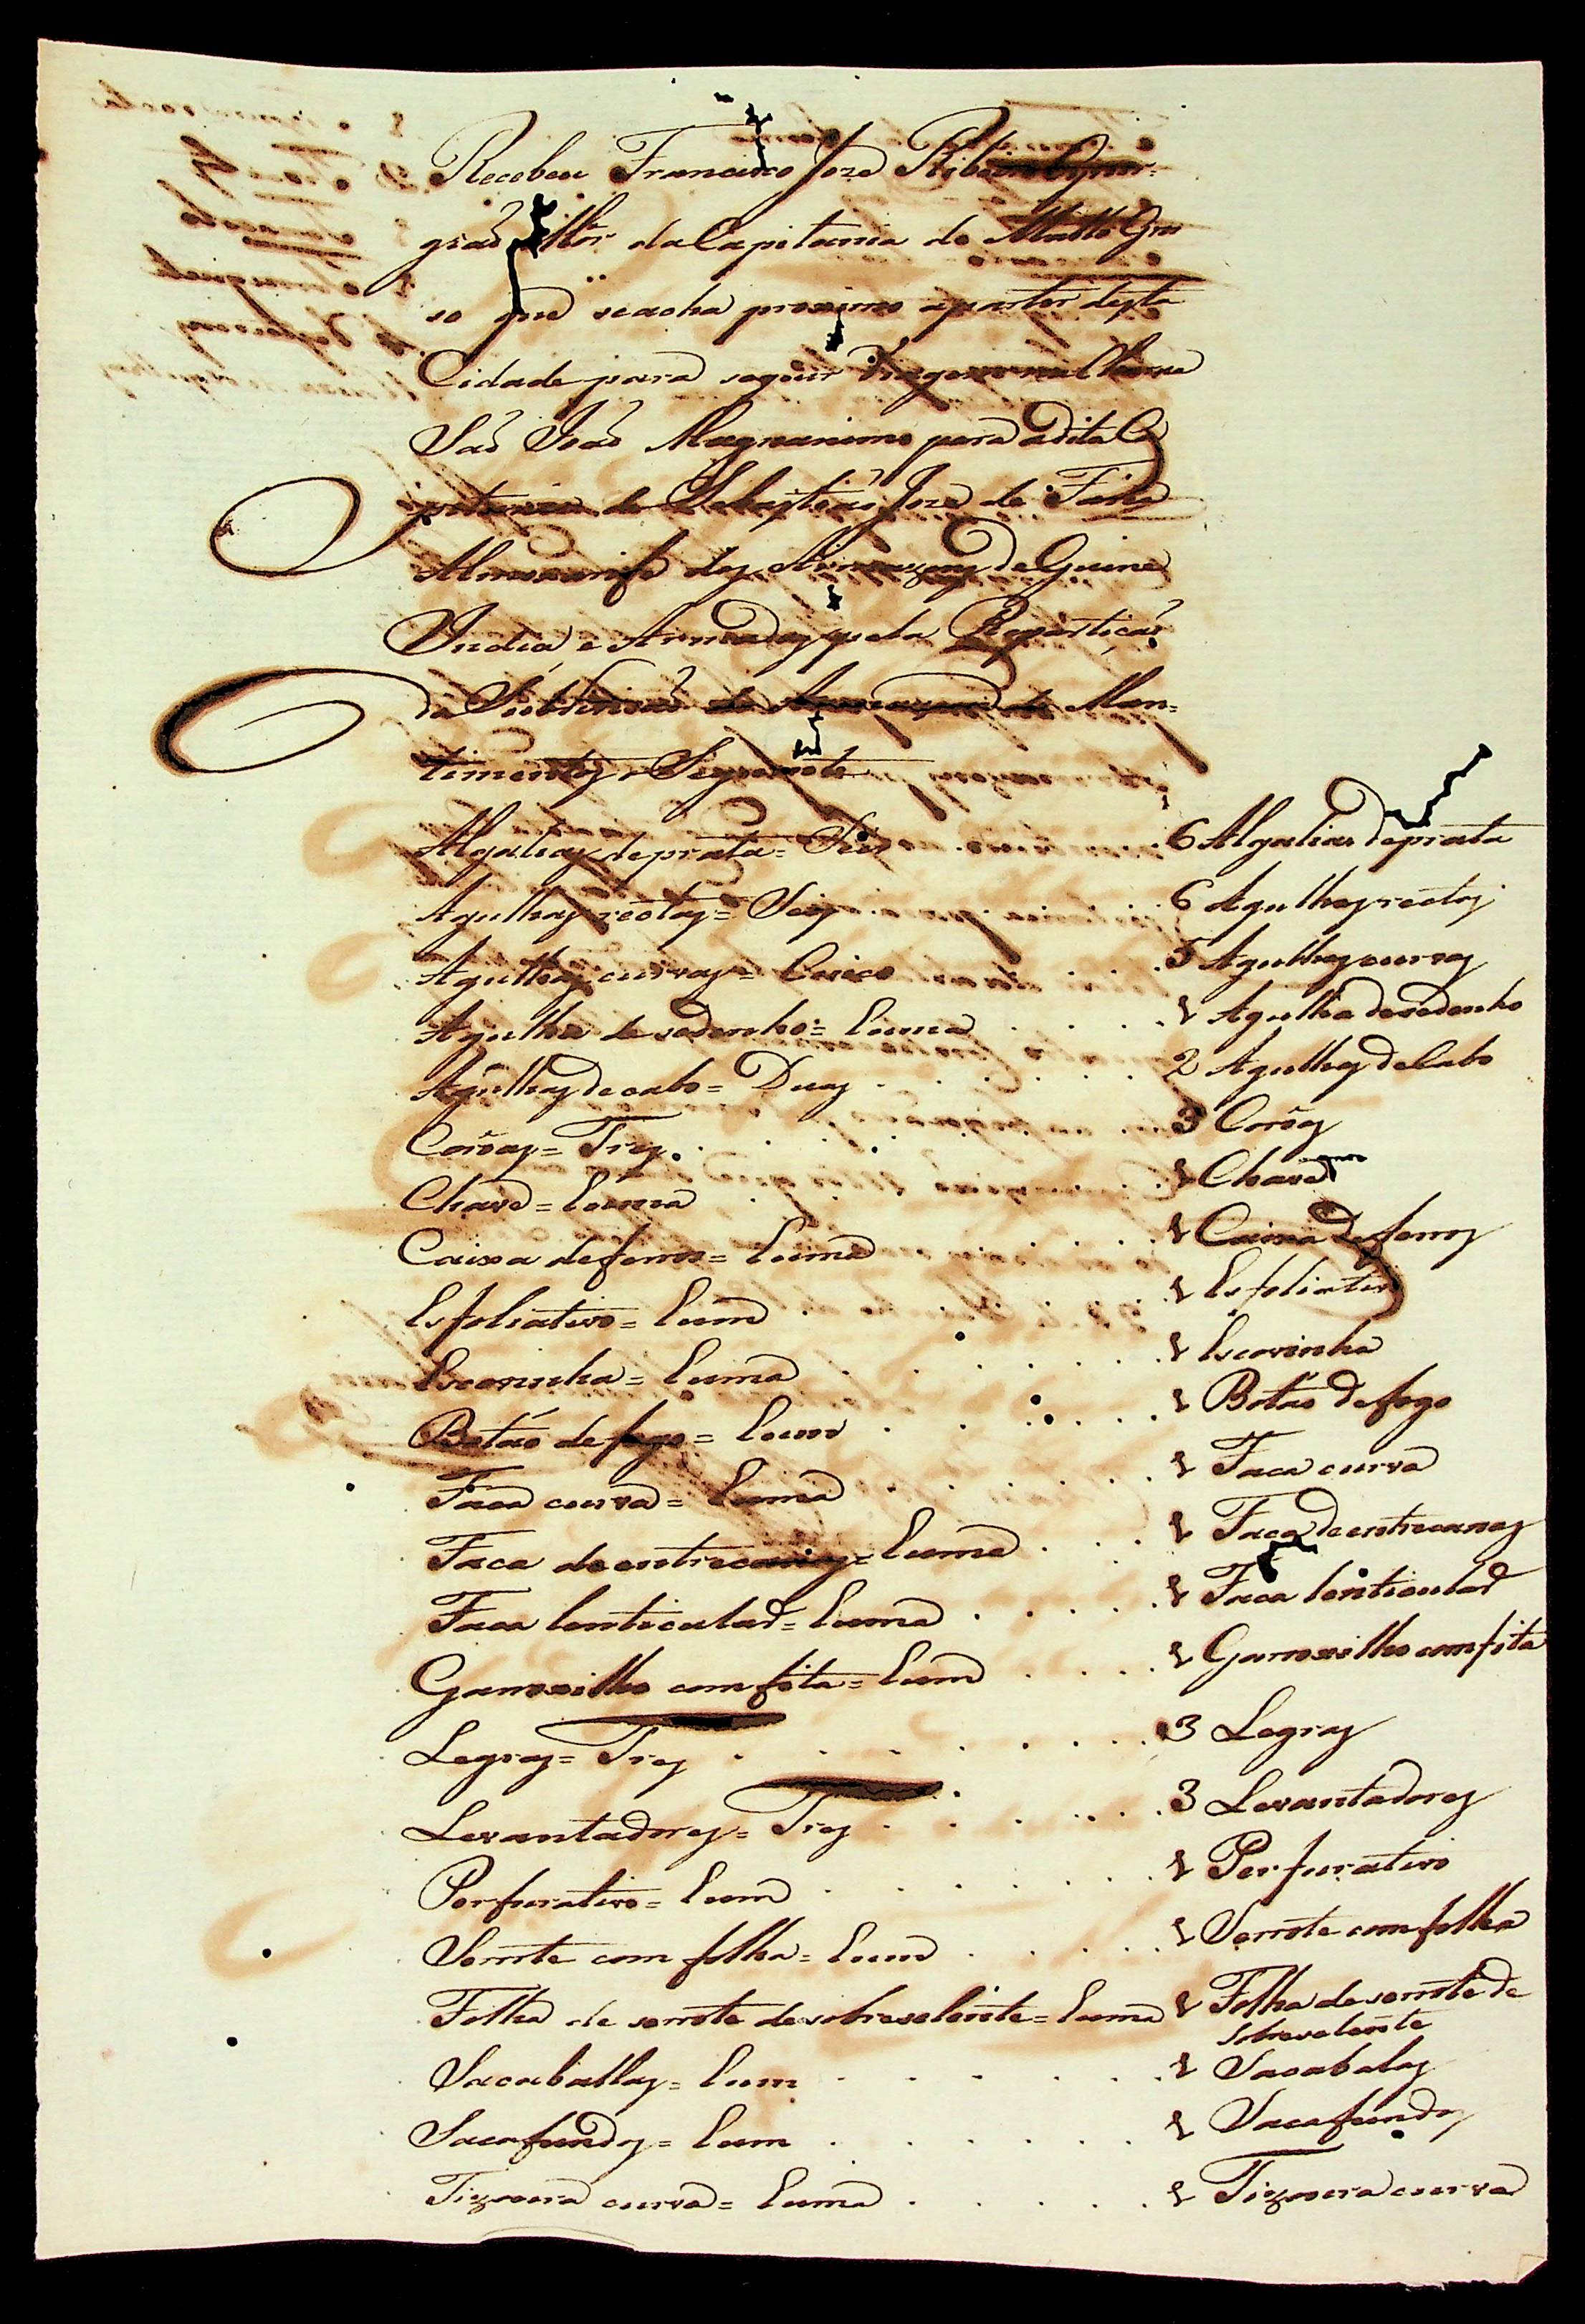 Recebeu Francisco Joze Ribeiro Cyrur-
giaõ Mór da Capitania do Matto Gro
so que seacha proximo apartir desta
Cidade para seguir Viagem na Charrua
Saõ Joaõ Magnanimo para adita Ca
pitania de Sebastiaõ Joze de Faria
Almoxarife dos Armazens de Guiné
India e Armadas pela Repartiçaõ
da Sub Armazem de Man=
timentos o Seguinte
Algalias de prata = Seis . 6 Algalias de prata
Agulhas rectas = Seis . 6 Agulhas rectas
Agulhas curvas = Cinco . 5 Agulhas curvas
Agulha de sedenho = huma . 1 Agulha de sedenho
Agulhas de cabo = Duas . 2 Agulhas de Cabo
Coroas = Tres . 3 Coroas
Chave = huma . 1 Chave
Caixa de ferros = huma . 1 Caixa de ferros
Esfoliativo = hum . 1 Esfoliativo
Escovinha = huma . 1 Escovinha
Botaõ de fogo = hum . 1 Botaõ de fogo
Faca curva = huma . 1 Faca curva
Faca de entrecanas = huma . 1 Faca de entrecanas
Faca lenticular = huma . 1 Faca lenticular
Garroxilho com fita = hum . 1 Garroxilho com fita
Legras = Tres . 3 Legras
Levantadores = Tres . 3 Levantadores
Perfurativo = hum . 1 Perfurativo
Serrote com folha = hum . 1 Serrote com folha
Folha de serrote de sobreselente = huma 1 Folha de serrote de
sobreselente
Sacaballas = hum . 1 Sacabalas
Sacafundos = hum . 1 Sacafundos
Tizoura curva = huma . 1 Tizoura curva